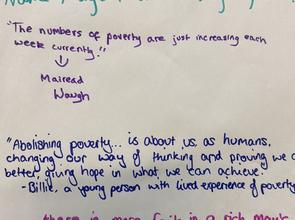 "The numbers of poverty are just increasing each
week currently."
Mairead
Waugh
"Abolishing poverty... is about us, as humans,
changing our way of thinking and proving we c
better, giving hope in what we can achieve."
- Billie, a young person with lived experience of poverty
there is more
in a rich man's